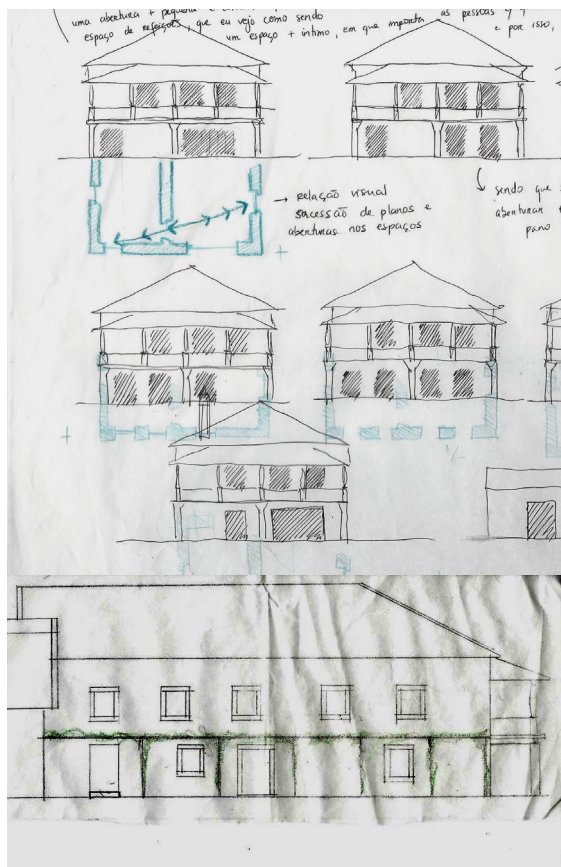 uma abertura + pequena e
espaço de refeições, que eu vejo como sendo
um espaço + íntimo, em que importa as pessoas
e por isso,
→ relação visual
sucessão de planos e
aberturas nos espaços
sendo que
aberturas
pano
+
+
+/-